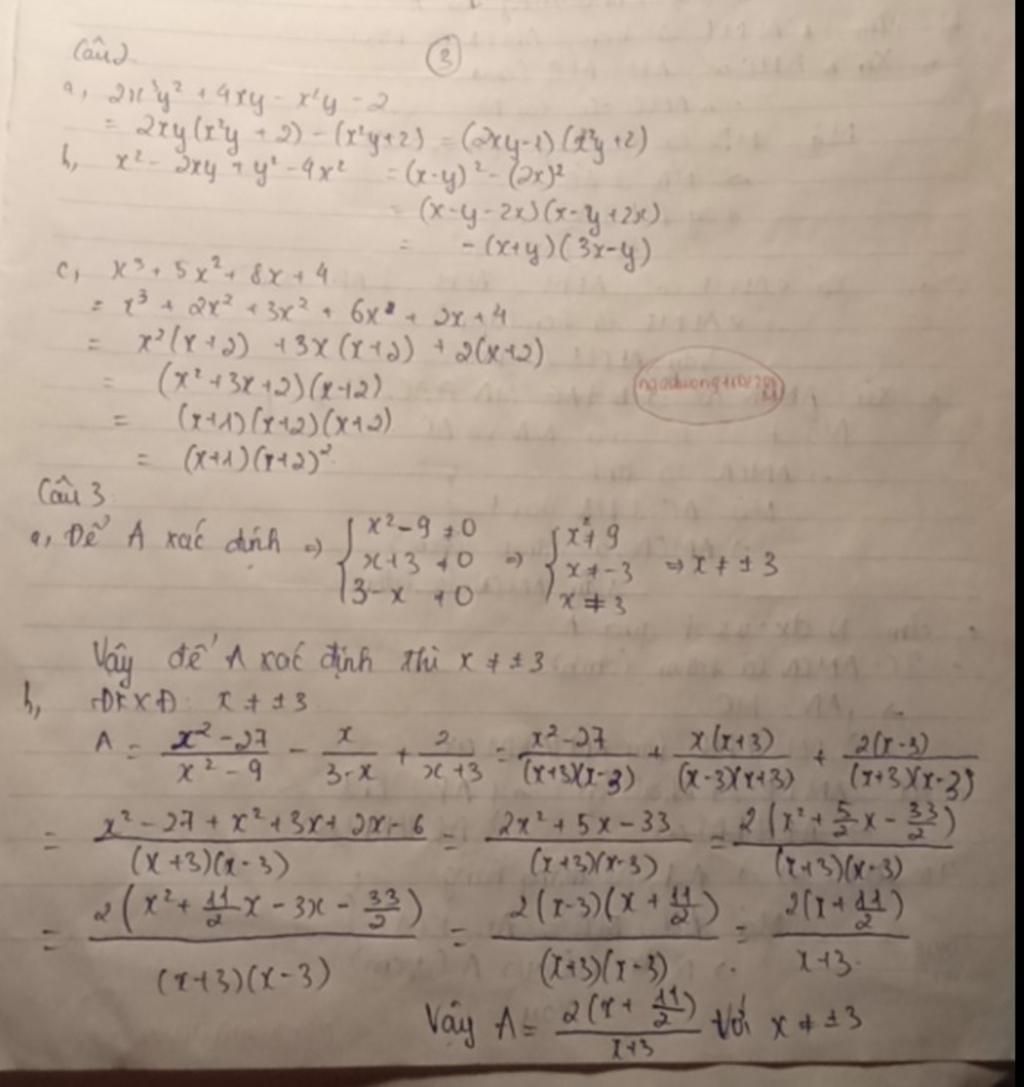 ③
Câu 2
a, 2x³y² + 4xy - x²y - 2
= 2xy(x²y + 2) - (x²y+2) = (2xy-1)(x²y+2)
b, x² - 2xy + y² - 4x² = (x-y)² - (2x)²
= (x-y-2x)(x-y+2x)
= -(x+y)(3x-y)
c, x³ + 5x² + 8x + 4
= x³ + 2x² + 3x² + 6x + 2x + 4
= x²(x+2) + 3x(x+2) + 2(x+2)
= (x²+3x+2)(x+2)
= (x+1)(x+2)(x+2)
= (x+1)(x+2)²
Câu 3
a, Để A xác định => { x²-9 ≠ 0; x+3 ≠ 0; 3-x ≠ 0 => { x² ≠ 9; x ≠ -3; x ≠ 3 => x ≠ ±3
Vậy để A xác định thì x ≠ ±3
b, ĐKXĐ: x ≠ ±3
A = (x²-27)/(x²-9) - x/(3-x) + 2/(x+3) = (x²-27)/((x+3)(x-3)) + x(x+3)/((x-3)(x+3)) + 2(x-3)/((x+3)(x-3))
= (x²-27+x²+3x+2x-6)/((x+3)(x-3)) = (2x²+5x-33)/((x+3)(x-3)) = 2(x²+5/2x-33/2)/((x+3)(x-3))
= 2(x²+11/2x-3x-33/2)/((x+3)(x-3)) = 2(x-3)(x+11/2)/((x+3)(x-3)) = 2(x+11/2)/(x+3)
Vậy A = 2(x+11/2)/(x+3) với x ≠ ±3